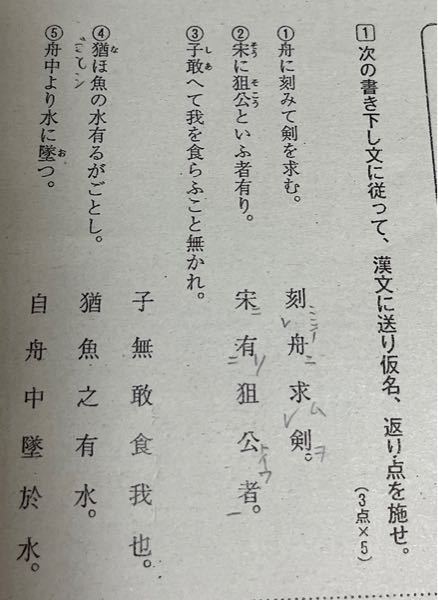 1 次の書き下し文に従って、漢文に送り仮名、返り点を施せ。
(3点×5)
①舟に刻みて剣を求む。
刻ミテレ舟ニ求ムレ剣ヲ。
②宋に狙公といふ者有り。
そう そこう
宋ニ有リ二狙公トイウ者一。
③子敢へて我を食らふこと無かれ。
し あ
子無敢食我也。
④猶ほ魚の水有るがごとし。
な
猶魚之有水。
⑤舟中より水に墜つ。
お
自舟中墜於水。